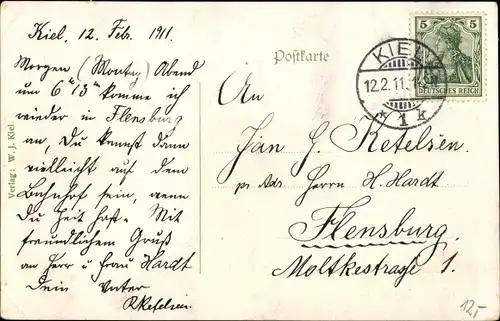 Kiel, 12. Febr. 1911.
Morgen (Montag) Abend
um 6 Uhr 13 komme ich
wieder in Flensburg
an, Du kannst dann
vielleicht auf dem
Bahnhof sein, wenn
Du Zeit hast. Mit
freundlichem Gruß
an Herr u Frau Hardt
Dein Vater
R Ketelsen.
Verlag: W. J. Kiel.
Postkarte
5 5
DEUTSCHES REICH
KIEL
12.2.11.
* 1 k
An
Jan H. Ketelsen.
pr Adr. Herrn H. Hardt
Flensburg.
Moltkestraße 1.
12,-